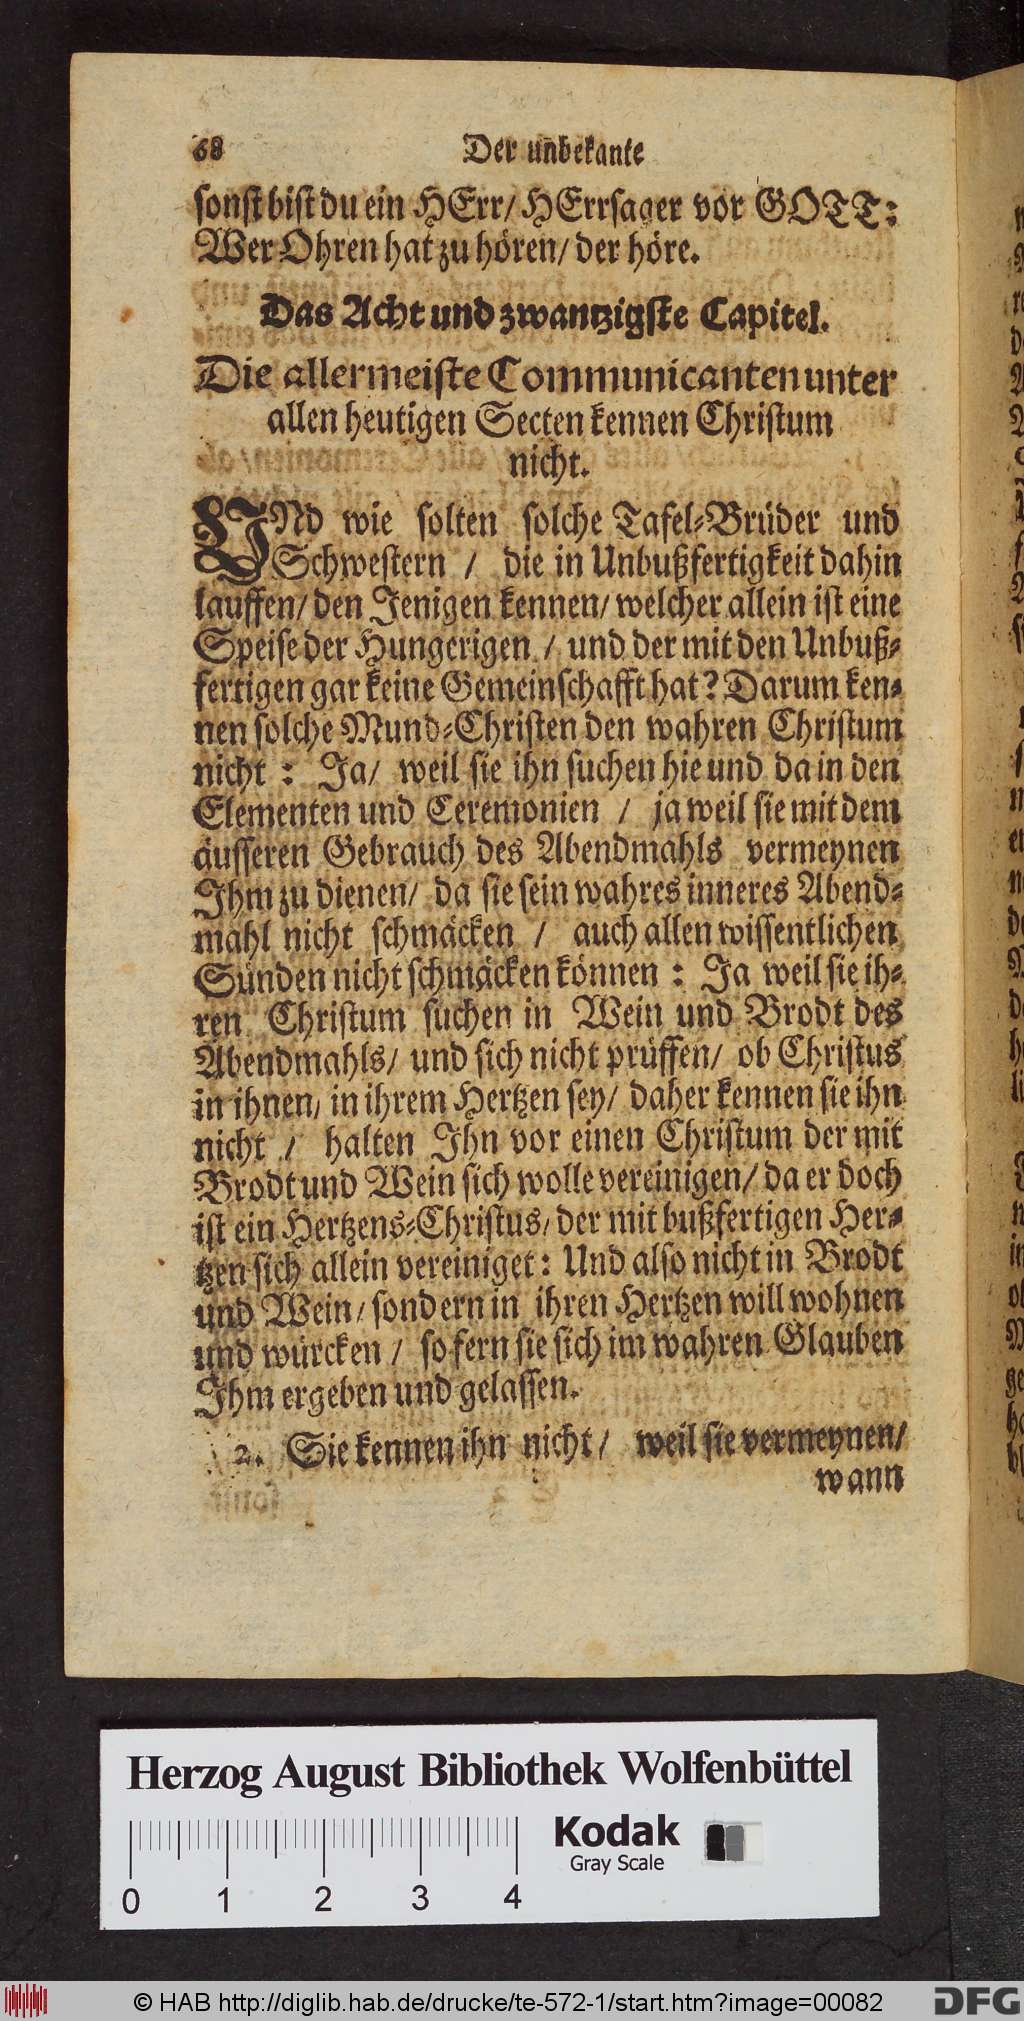 68 Der unbekante
sonst bist du ein HErr/ HErrsager vor GOTT:
Wer Ohren hat zu hören/ der höre.
Das Acht und zwantzigste Capitel.
Die allermeiste Communicanten unter
allen heutigen Secten kennen Christum
nicht.
UNd wie solten solche Tafel-Brüder und
Schwestern / die in Unbußfertigkeit dahin
lauffen/ den Jenigen kennen/ welcher allein ist eine
Speise der Hungerigen / und der mit den Unbuß-
fertigen gar keine Gemeinschafft hat? Darum ken-
nen solche Mund-Christen den wahren Christum
nicht : Ja/ weil sie ihn suchen hie und da in den
Elementen und Ceremonien / ja weil sie mit dem
äusseren Gebrauch des Abendmahls vermeynen
Ihm zu dienen/ da sie sein wahres inneres Abend-
mahl nicht schmäcken / auch allen wissentlichen
Sünden nicht schmäcken können : Ja weil sie ih-
ren Christum suchen in Wein und Brodt des
Abendmahls/ und sich nicht prüffen/ ob Christus
in ihnen/ in ihrem Hertzen sey/ daher kennen sie ihn
nicht / halten Ihn vor einen Christum der mit
Brodt und Wein sich wolle vereinigen/ da er doch
ist ein Hertzens-Christus/ der mit bußfertigen Her-
tzen sich allein vereiniget: Und also nicht in Brodt
und Wein/ sondern in ihren Hertzen will wohnen
und würcken / so fern sie sich im wahren Glauben
Ihm ergeben und gelassen.
2. Sie kennen ihn nicht/ weil sie vermeynen/
wann
Herzog August Bibliothek Wolfenbüttel
Kodak
Gray Scale
0 1 2 3 4
© HAB http://diglib.hab.de/drucke/te-572-1/start.htm?image=00082
DFG